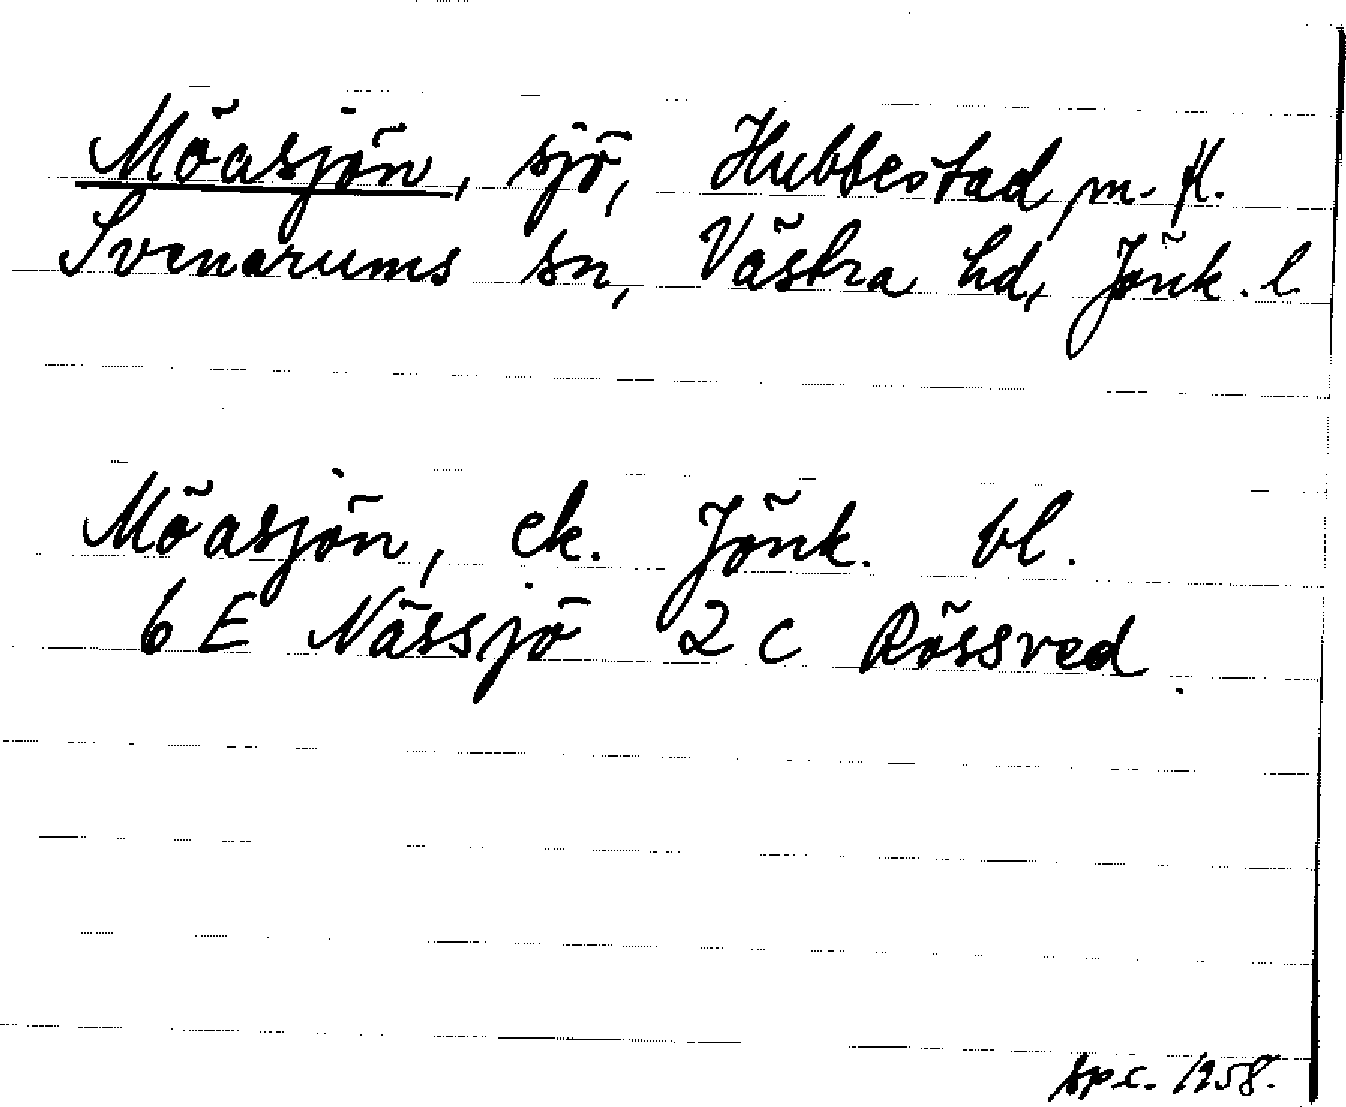 Möasjön, sjö, Hubbestad m. fl.
Svenarums sn, Västra hd, Jönk. l
Möasjön, ek. Jönk. bl.
6 E Nässjö 2 c Rössved
sp.c. 1958.